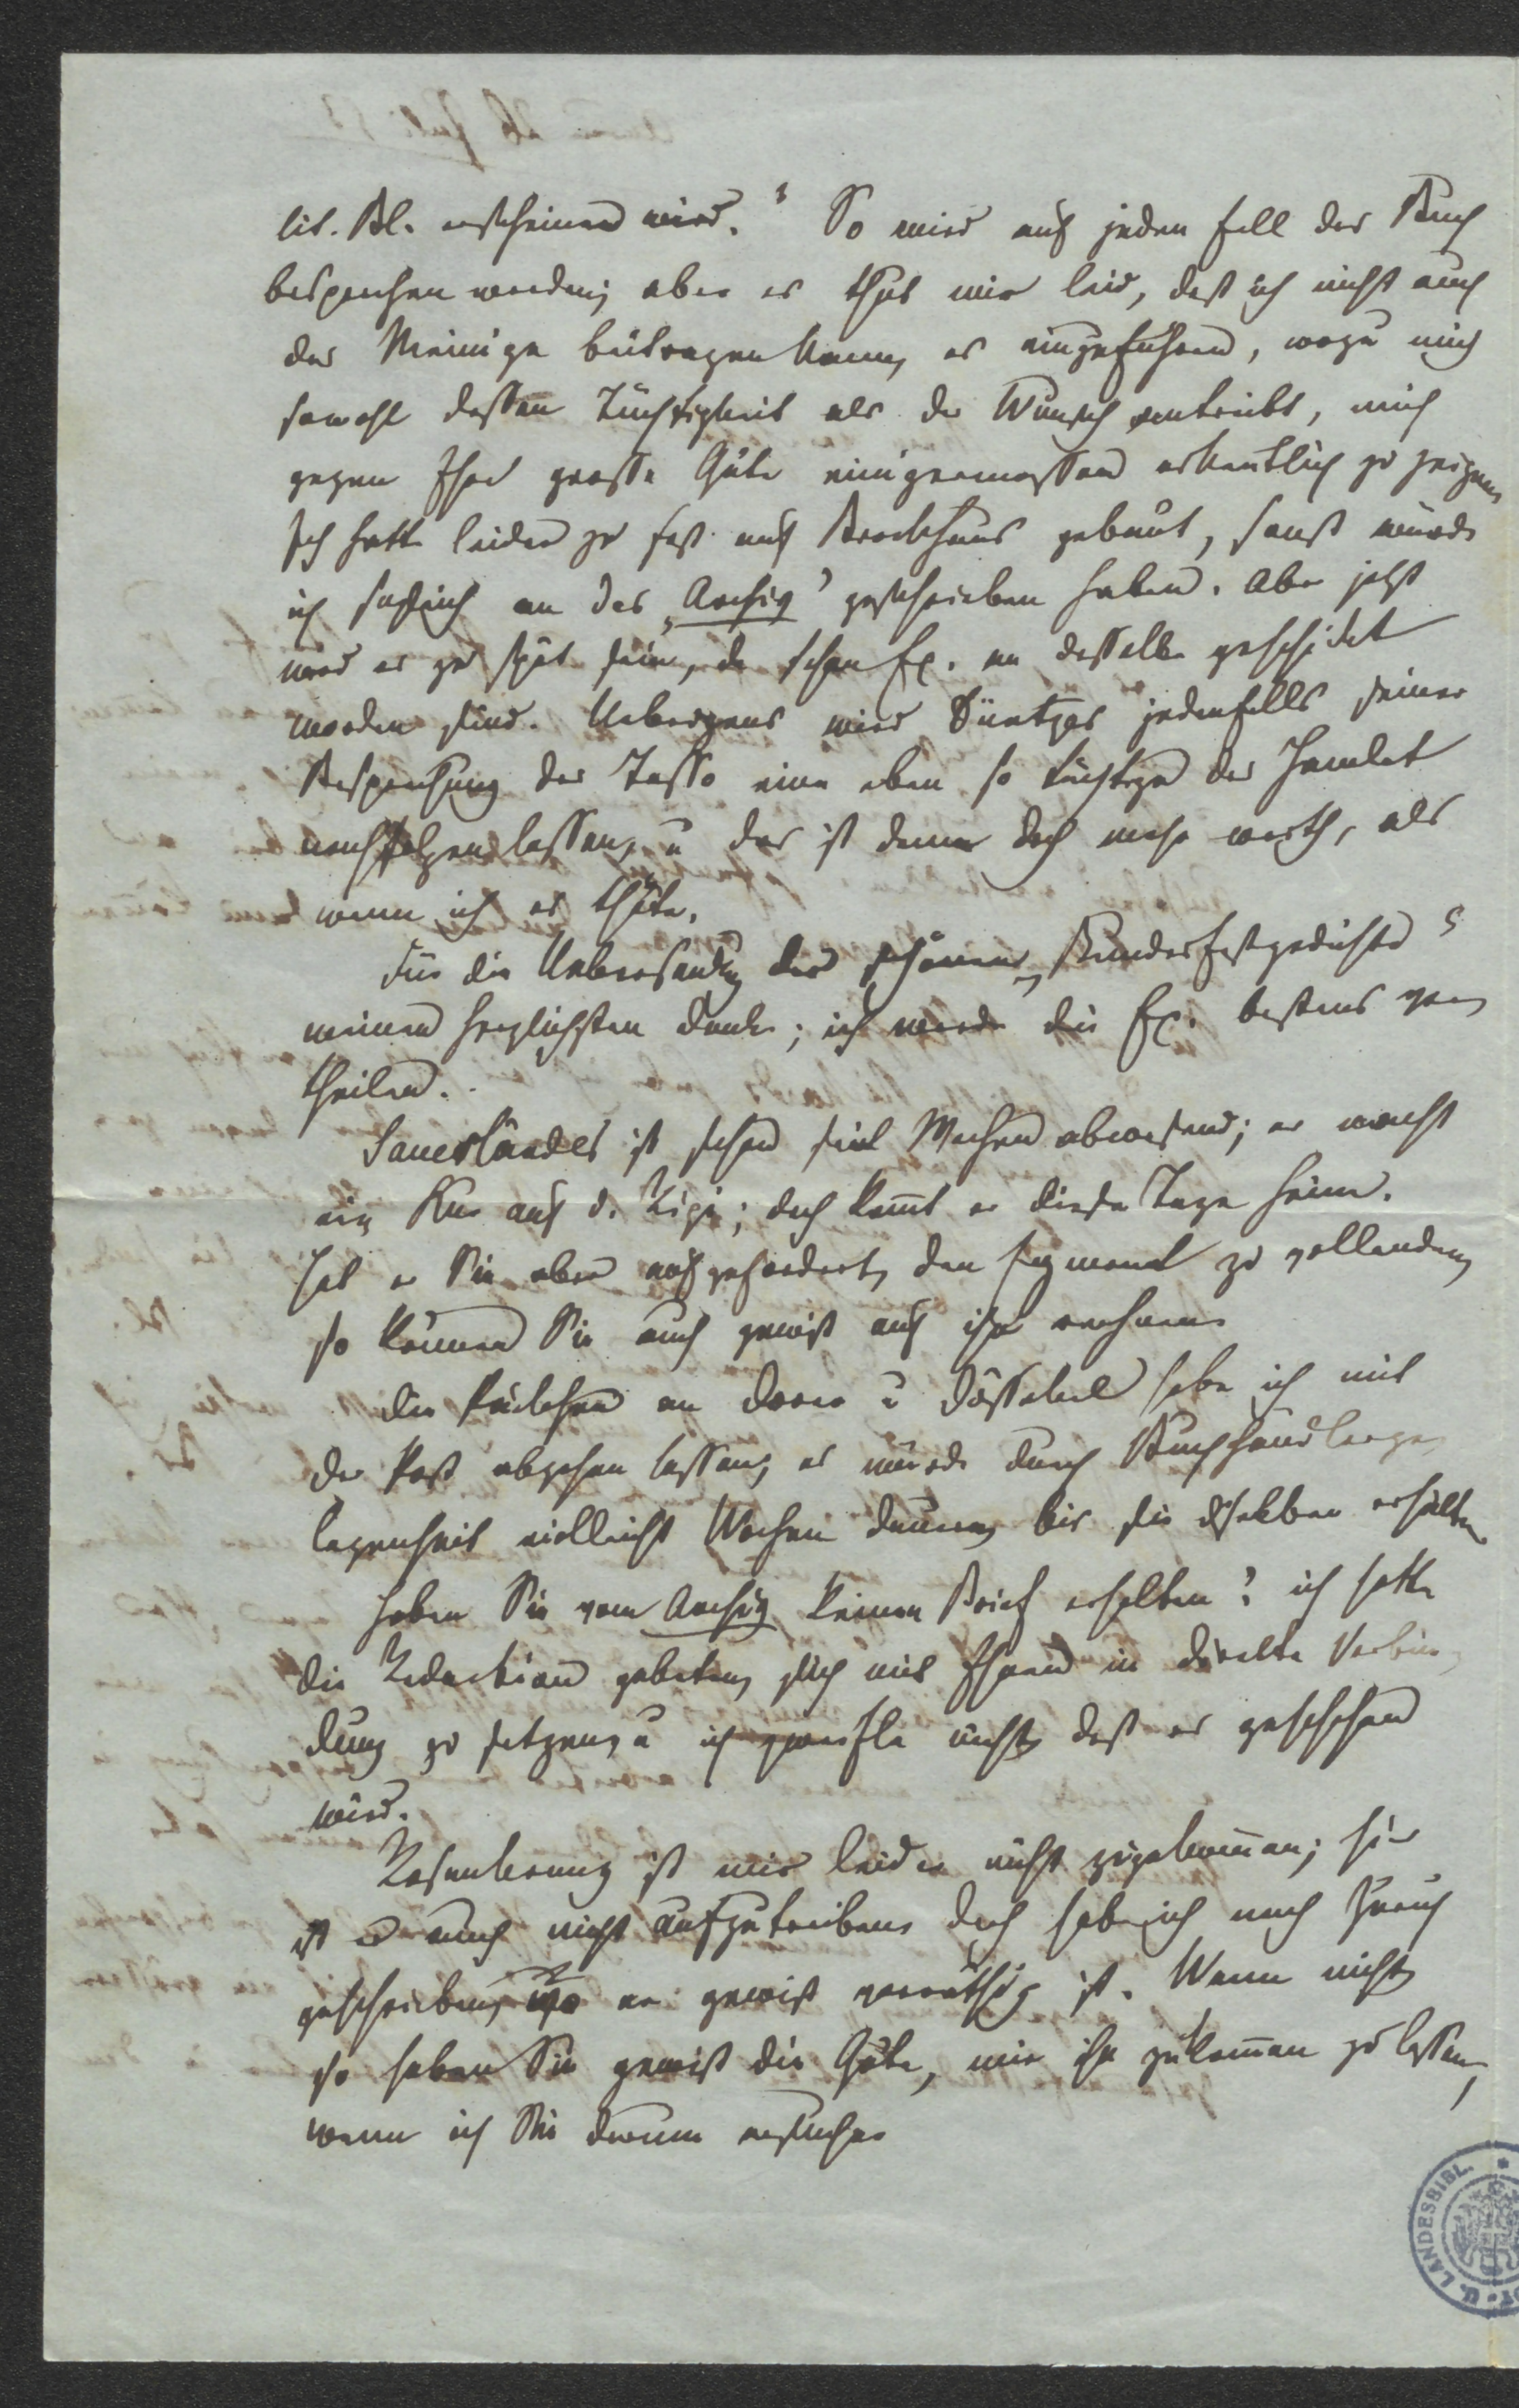 lit. Bl. erscheinen wird." So wird auf jeden Fall das Buch
besprochen werden; aber es thut mir leid, daß ich nicht auch
das Meinige beitragen kann, es einzuführen, wozu mich
sowohl dessen Tüchtigkeit als der Wunsch antreibt, mich
gegen Ihre große Güte einigermaßen erkentlich zu zeigen.
Ich hatte leider zu fest auf Brockhaus gebaut, sonst würde
ich sogleich an das "Archiv" geschrieben haben. Aber jetzt
wird es zu spät sein, da schon Ex. an dasselbe geschickt
worden sind. Uebrigens wird Düntzer jedenfalls seiner
Besprechung des Tasso eine eben so tüchtige des Hamlet
nachfolgen lassen, u das ist denn doch mehr werth, als
wenn ich es thäte.
Für die Uebersendung der schönen "Bundesfestgedichte"
meinen herzlichsten Dank; ich werde die Ex. bestens ver
theilen.
Sauerländer ist schon seit Wochen abwesend; er macht
eine Kur auf d. Rigi; doch komt er diese Tage heim.
Hat er Sie aber aufgefordert, den Egmont zu vollenden,
so können Sie auch gewiß auf ihn rechnen.
Die Päckchen an Dorer u Dössekel habe ich mit
der Post abgehen lassen; es würde durch Buchhändlerge
legenheit vielleicht Wochen dauern, bis sie dieselben erhalten.
Haben Sie vom Archiv keinen Brief erhalten? ich hatte
die Redaction gebeten, sich mit Ihnen in direkte Verbin
dung zu setzen, u ich zweifle nicht, daß es geschehen
wird.
Rosenkranz ist mir leider nicht zugekommen; hier
ist er auch nicht aufzutreiben, doch habe ich nach Zürich
geschrieben, wo er gewiß vorräthig ist. Wenn nicht
so haben Sie gewiß die Güte, mir ihn zukommen zu lassen,
wenn ich Sie darum ersuche.
LANDESBIBL.